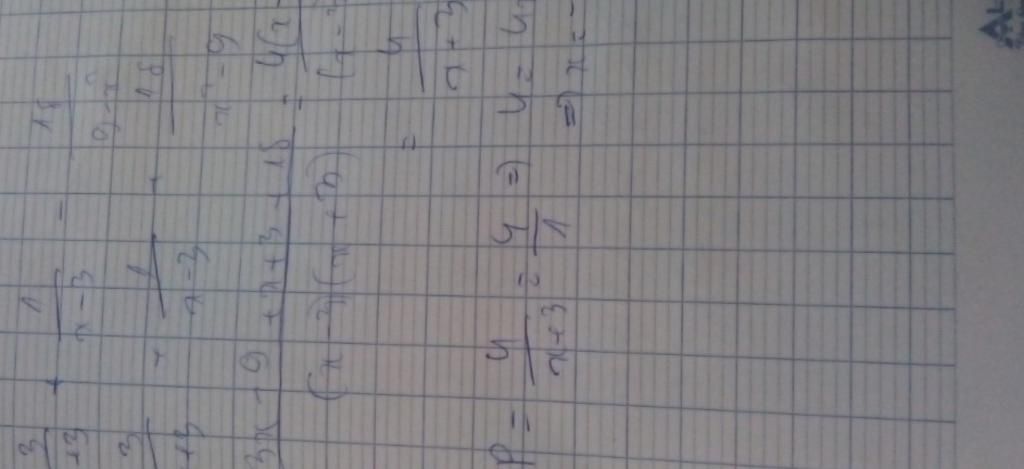 3/+3 + 1/x-3 - 18/9-x²
3/+3 + 1/x-3 + 18/x²-9
3x-9+x+3+18/(x-3)(x+3) = 4(x/(x-
= 4/x+3
P = 4/x+3 = 4/1 => 4 = 4
=> x = -